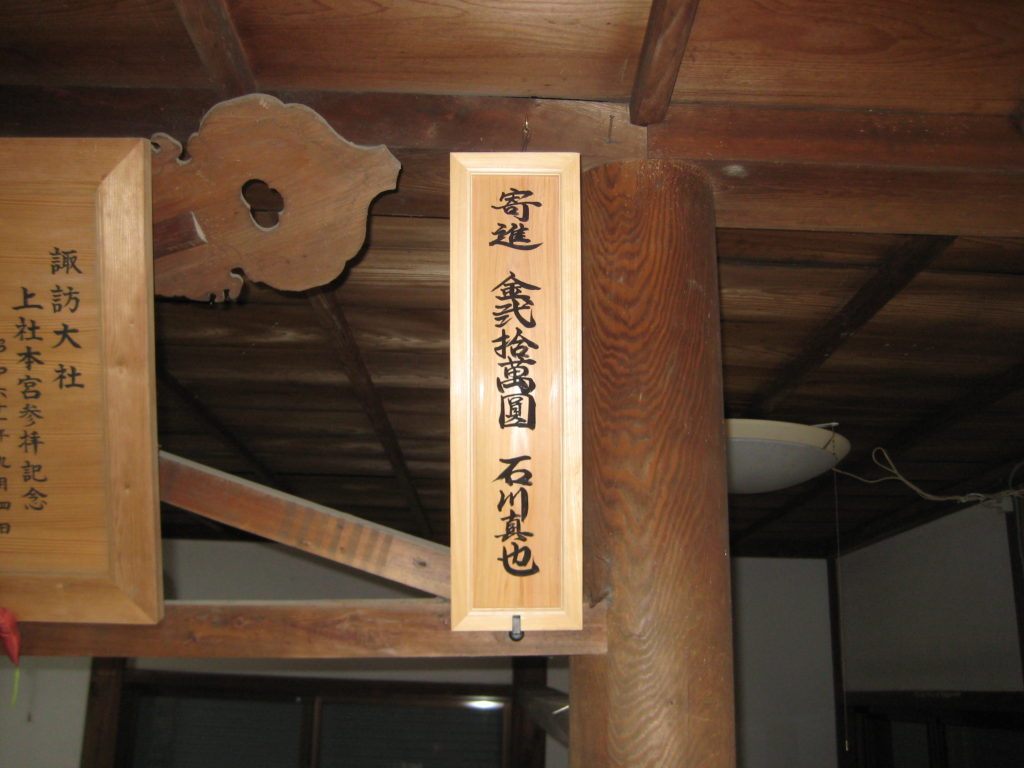 寄進 金弐拾萬圓 石川真也
諏訪大社
上社本宮参拝記念
昭和六十一年九月四日